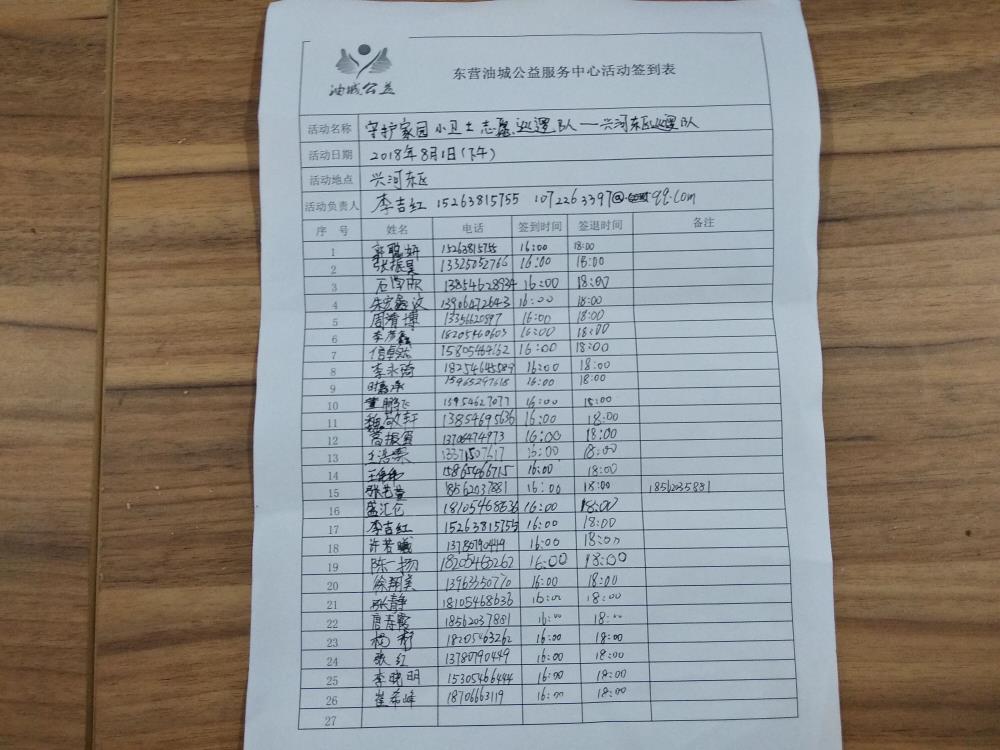 油城公益
东营油城公益服务中心活动签到表
活动名称 守护家园小卫士志愿巡逻队—兴河东区巡逻队
活动日期 2018年8月1日(下午)
活动地点 兴河东区
活动负责人 李吉红 15263815755 1072263397@qq.com
序 号 姓名 电话 签到时间 签退时间 备注
1 15263815755 16:00 18:00
2 张振昊 13325052766 16:00 18:00
3 13854628934 16:00 18:00
4 朱宏鑫波 13906472643 16:00 18:00
5 周清博 13356620897 16:00 18:00
6 18205460603 16:00 18:00
7 16:00 18:00
8 李永琦 18254645089 16:00 18:00
9 15965297618 16:00 18:00
10 董鹏飞 13954627077 16:00 18:00
11 魏敬轩 13854695636 16:00 18:00
12 13706474973 16:00 18:00
13 13371507617 16:00 18:00
14 15865466715 16:00 18:00
15 18562037881 16:00 18:00 18562035881
16 盛汇仑 18105468636 16:00 18:00
17 李吉红 15263815755 16:00 18:00
18 许若曦 13780790449 16:00 18:00
19 陈一扬 18205463262 16:00 18:00
20 徐翔宾 13963550770 16:00 18:00
21 张静 18105468636 16:00 18:00
22 唐春霞 18562037881 16:00 18:00
23 18205463262 16:00 18:00
24 张红 13780790449 16:00 18:00
25 李晓明 15305466444 16:00 18:00
26 崔希峰 18706663119 16:00 18:00
27